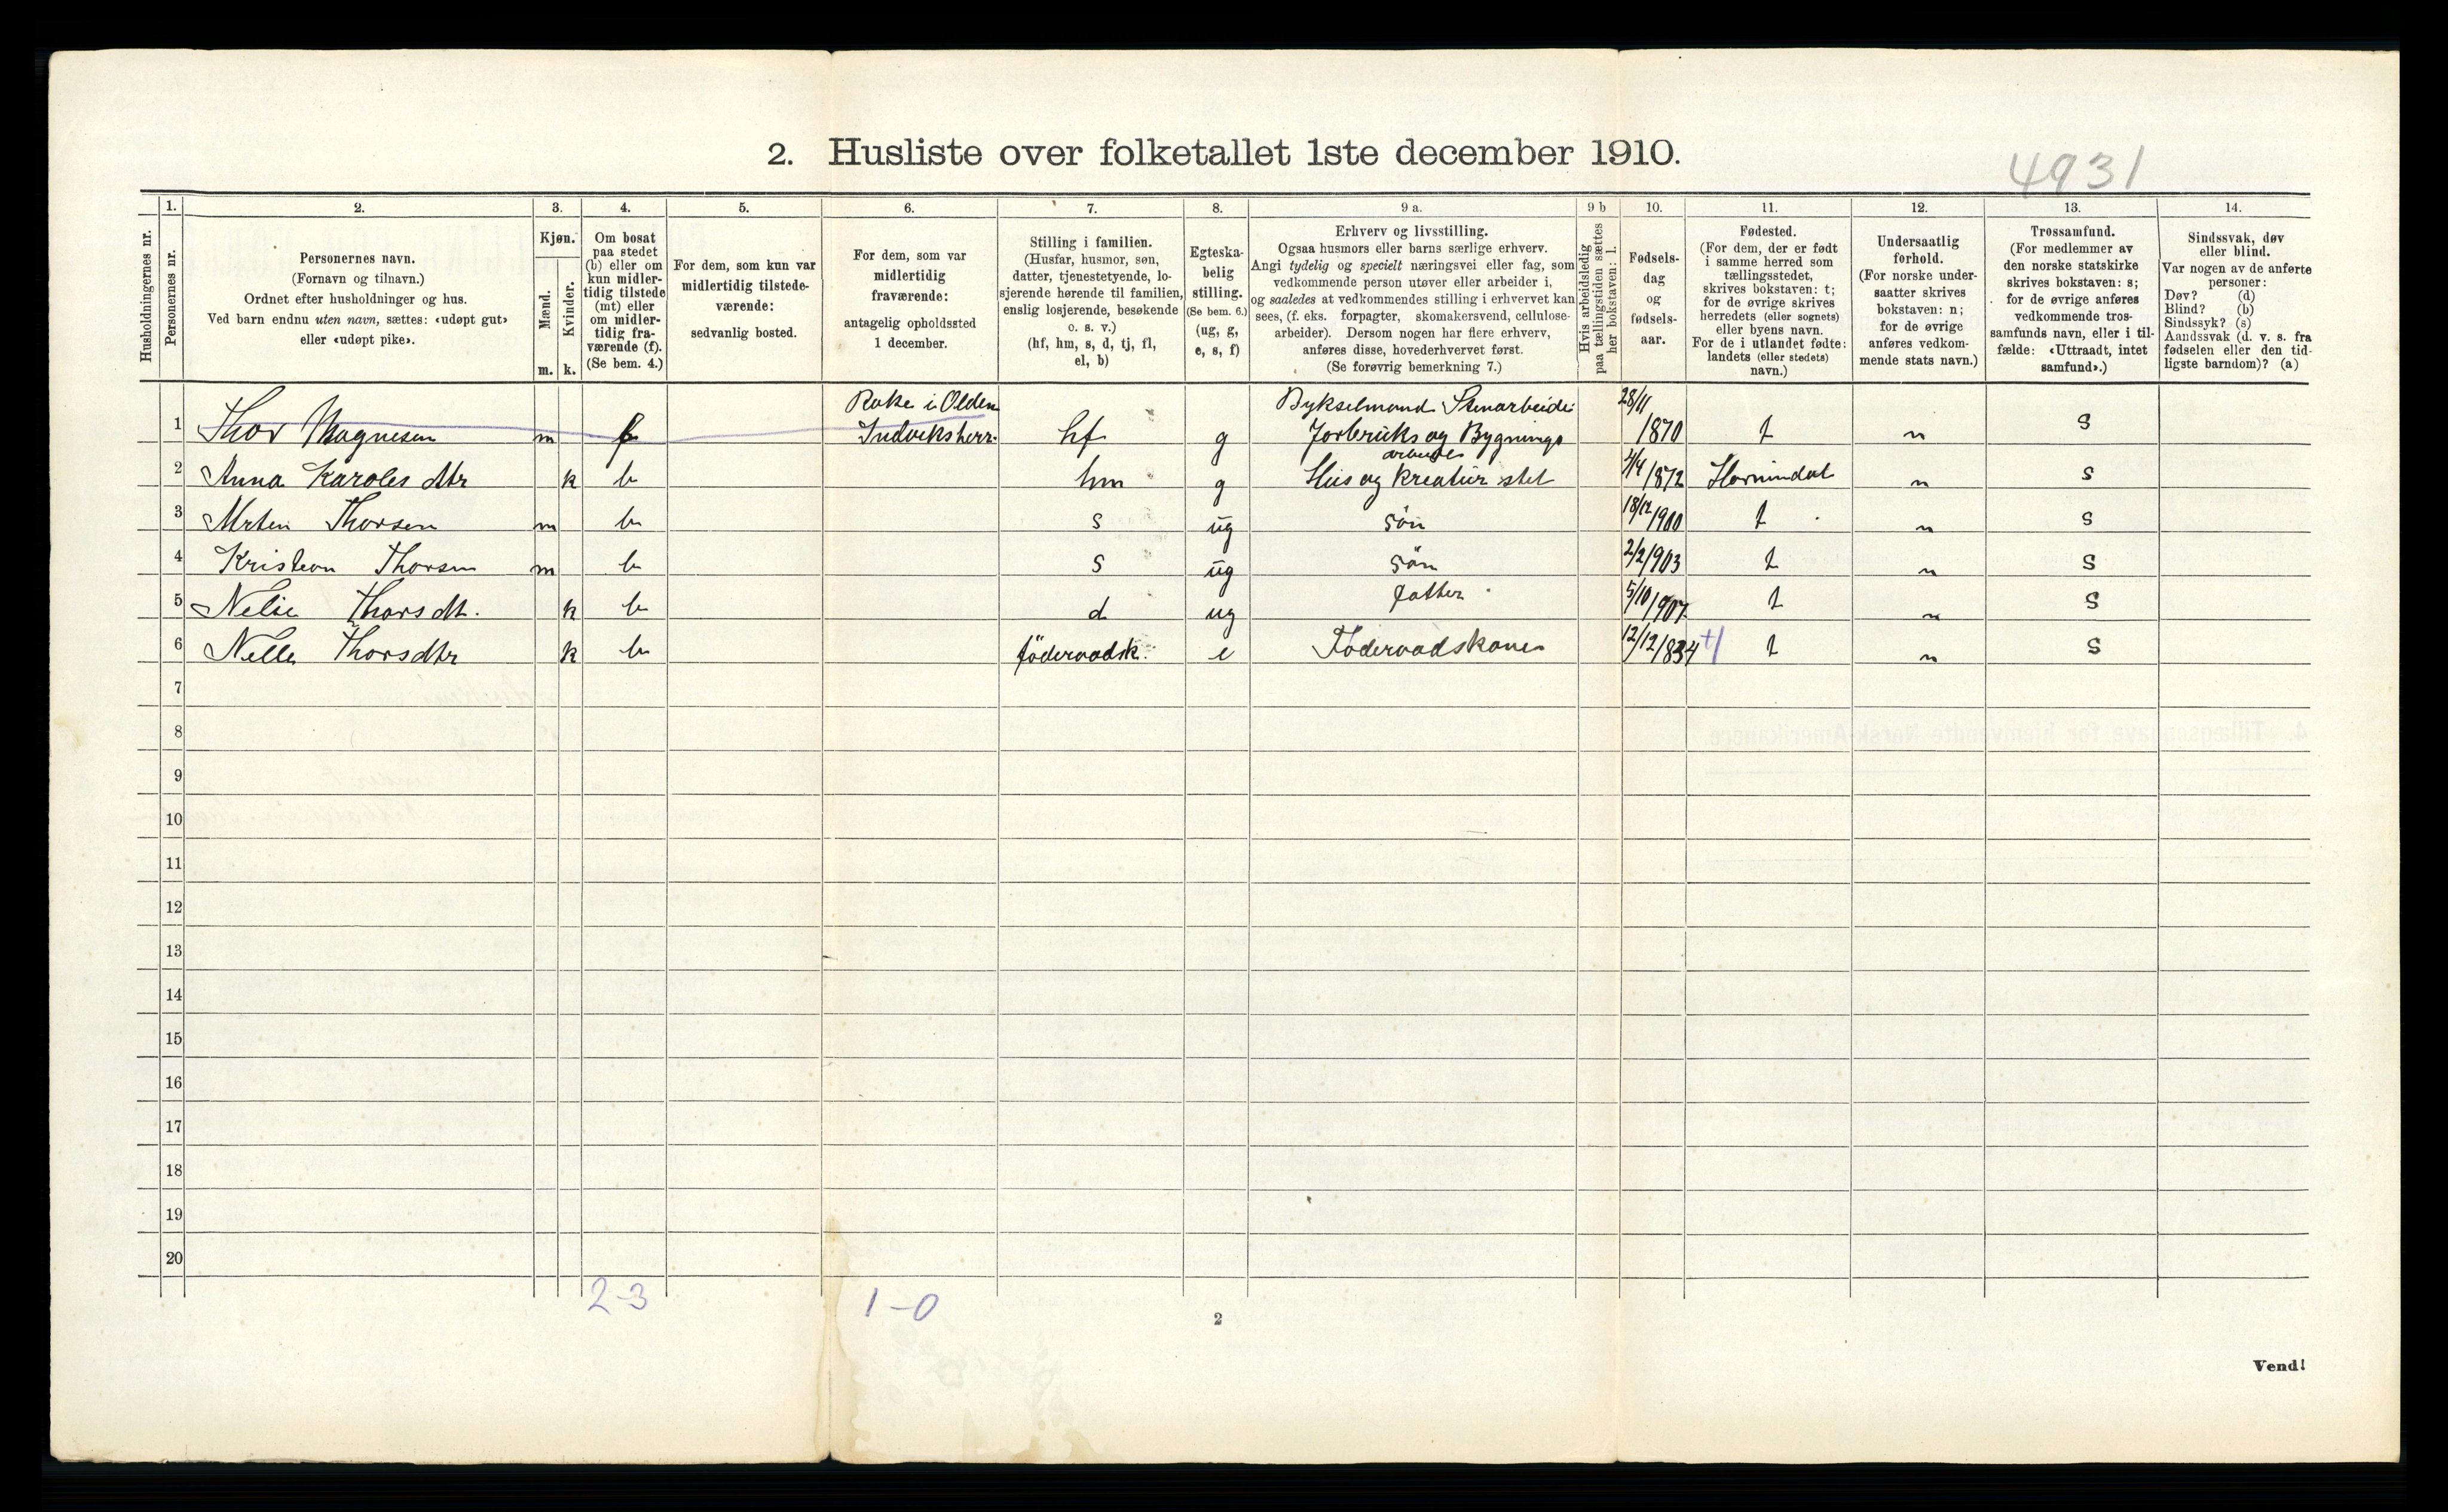 2. Husliste over folketallet 1ste december 1910.
4931
Husholdningernes nr.
1.
Personernes nr.
2.
Personernes navn.
(Fornavn og tilnavn.)
Ordnet efter husholdninger og hus.
Ved barn endnu uten navn, sættes: «udøpt gut»
eller «udøpt pike».
3.
Kjøn.
Mænd.
Kvinder.
m. k.
4.
Om bosat
paa stedet
(b) eller om
kun midler-
tidig tilstede
(mt) eller
om midler-
tidig fra-
værende (f).
(Se bem. 4.)
5.
For dem, som kun var
midlertidig tilstede-
værende:
sedvanlig bosted.
6.
For dem, som var
midlertidig
fraværende:
antagelig opholdssted
1 december.
7.
Stilling i familien.
(Husfar, husmor, søn,
datter, tjenestetyende, lo-
sjerende hørende til familien,
enslig losjerende, besøkende
o. s. v.)
(hf, hm, s, d, tj, fl,
el, b)
8.
Egteska-
belig
stilling.
(Se bem. 6.)
(ug, g,
e, s, f)
9 a.
Erhverv og livsstilling.
Ogsaa husmors eller barns særlige erhverv.
Angi tydelig og specielt næringsvei eller fag, som
vedkommende person utøver eller arbeider i,
og saaledes at vedkommendes stilling i erhvervet kan
sees, (f. eks. forpagter, skomakersvend, cellulose-
arbeider). Dersom nogen har flere erhverv,
anføres disse, hovederhvervet først.
(Se forøvrig bemerkning 7.)
9 b
Hvis arbeidsledig
paa tællingstiden sættes
her bokstaven: l.
10.
Fødsels-
dag
og
fødsels-
aar.
11.
Fødested.
(For dem, der er født
i samme herred som
tællingsstedet,
skrives bokstaven: t;
for de øvrige skrives
herredets (eller sognets)
eller byens navn.
For de i utlandet fødte:
landets (eller stedets)
navn.)
12.
Undersaatlig
forhold.
(For norske under-
saatter skrives
bokstaven: n;
for de øvrige
anføres vedkom-
mende stats navn.)
13.
Trossamfund.
(For medlemmer av
den norske statskirke
skrives bokstaven: s;
for de øvrige anføres
vedkommende tros-
samfunds navn, eller i til-
fælde: «Uttraadt, intet
samfund».)
14.
Sindssvak, døv
eller blind.
Var nogen av de anførte
personer:
Døv? (d)
Blind? (b)
Sindssyk? (s)
Aandssvak (d. v. s. fra
fødselen eller den tid-
ligste barndom)? (a)
1 Thor Magnesen m f Rake i Olden Indviksherr. hf g Bykselmand Stenarbeide Jorbruks og Bygnings arbeide 28/11 1870 t n s
2 Anna Karolesdtr k b hm g Hus og Kreatur stel 4/4 1872 Hornindal n s
3 Mrten Thorsen m b s ug sön 18/12 1900 t n s
4 Kristian Thorsen m b s ug sön 2/2 1903 t n s
5 Nelie Thorsdt. k b d ug datter 5/10 1907 t n s
6 Nelle Thorsdtr k b föderaadsk. e Föderaadskone 12/12/834 t n s
7
8
9
10
11
12
13
14
15
16
17
18
19
20
2-3
1-0
2
Vend!